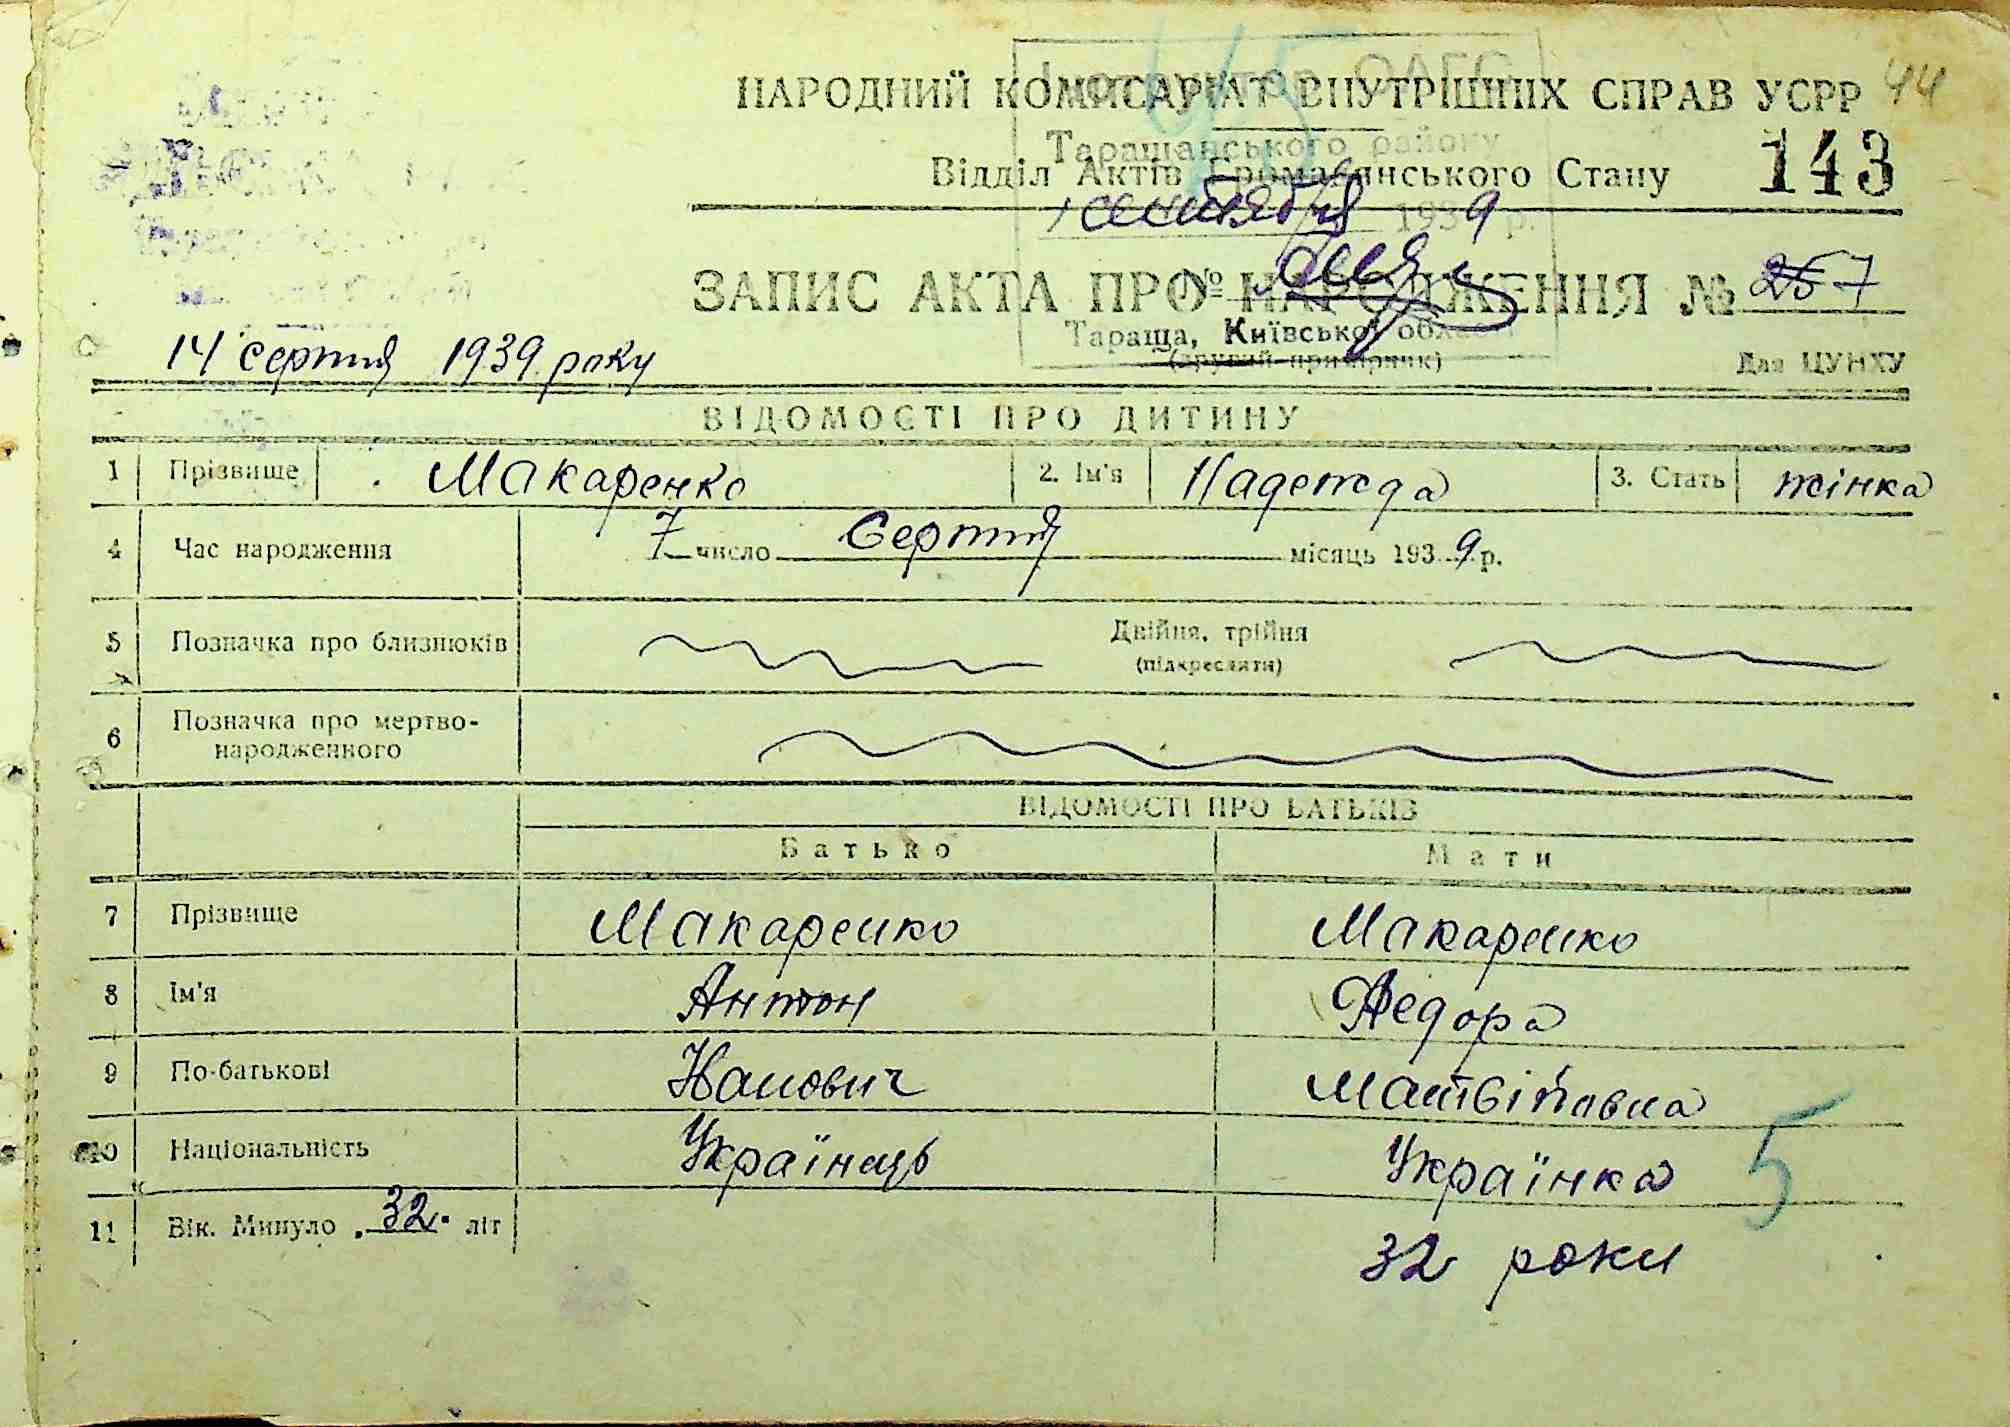 44
НАРОДНИЙ КОМІСАРІАТ ВНУТРІШНІХ СПРАВ УСРР
Таращанського району
Відділ Актів Громадянського Стану 143
сентября 1939 р.
ЗАПИС АКТА ПРО НАРОДЖЕННЯ № 7
№
Тараща, Київської області
14 серпня 1939 року (другий примірник) Для ЦУНХУ
ВІДОМОСТІ ПРО ДИТИНУ
1 Прізвище Макаренко 2. Ім'я Надежда 3. Стать жінка
4 Час народження 7 число Серпня місяць 1939 р.
5 Позначка про близнюків Двійня, трійня
(підкреслити)
6 Позначка про мертво-
народженного
ВІДОМОСТІ ПРО БАТЬКІВ
Батько Мати
7 Прізвище Макаренко Макаренко
8 Ім'я Антон Федора
9 По-батькові Матвіївна
10 Національність Українець Українка 5
11 Вік. Минуло 32 літ 32 роки